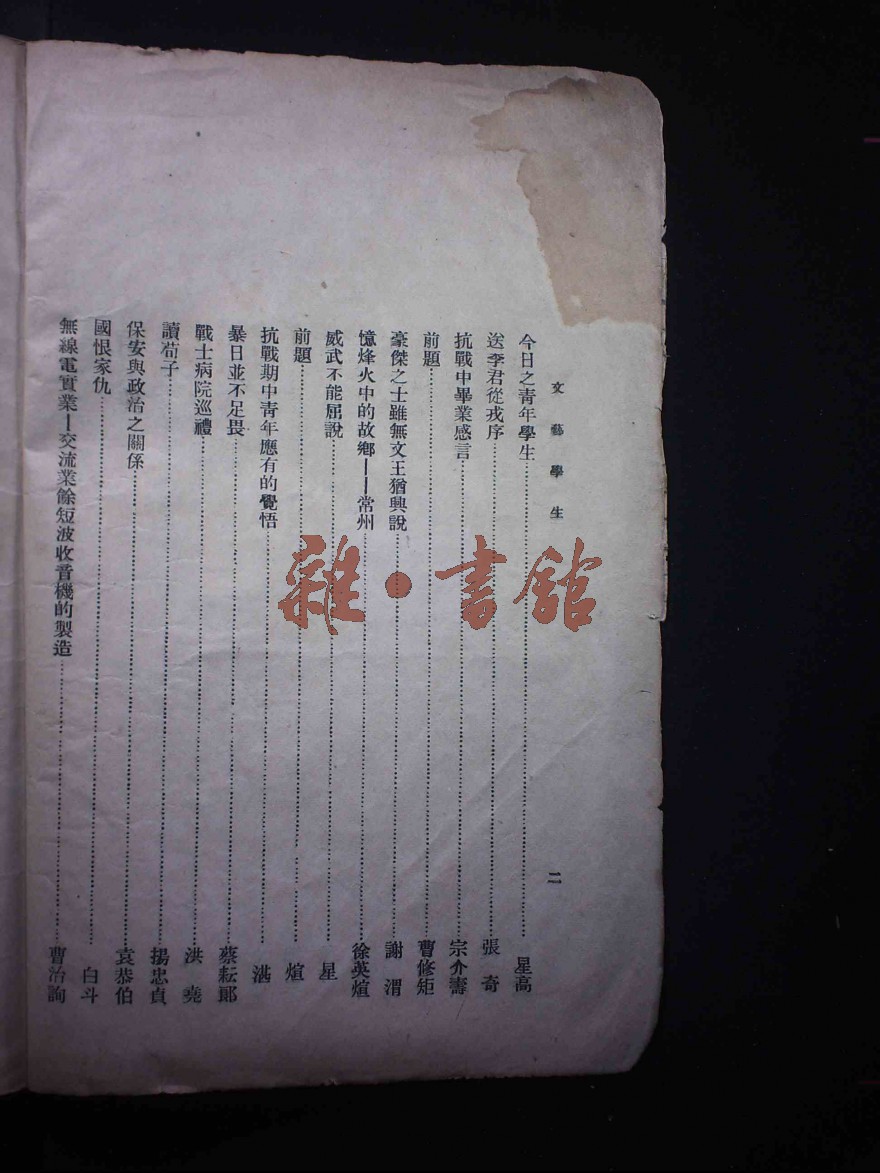 文藝學生 二
今日之青年學生……星高
送李君從戎序……張奇
抗戰中畢業感言……宗介壽
前題……曹修矩
豪傑之士雖無文王猶興說……謝渭
憶烽火中的故鄉——常州……徐英煊
威武不能屈說……星
前題……煊
抗戰期中青年應有的覺悟……湛
暴日並不足畏……蔡耘郧
戰士病院巡禮……洪堯
讀荀子……揚忠貞
保安與政治之關係……袁恭伯
國恨家仇……白斗
無線電實業—交流業餘短波收音機的製造……曹治詢
雜·書館